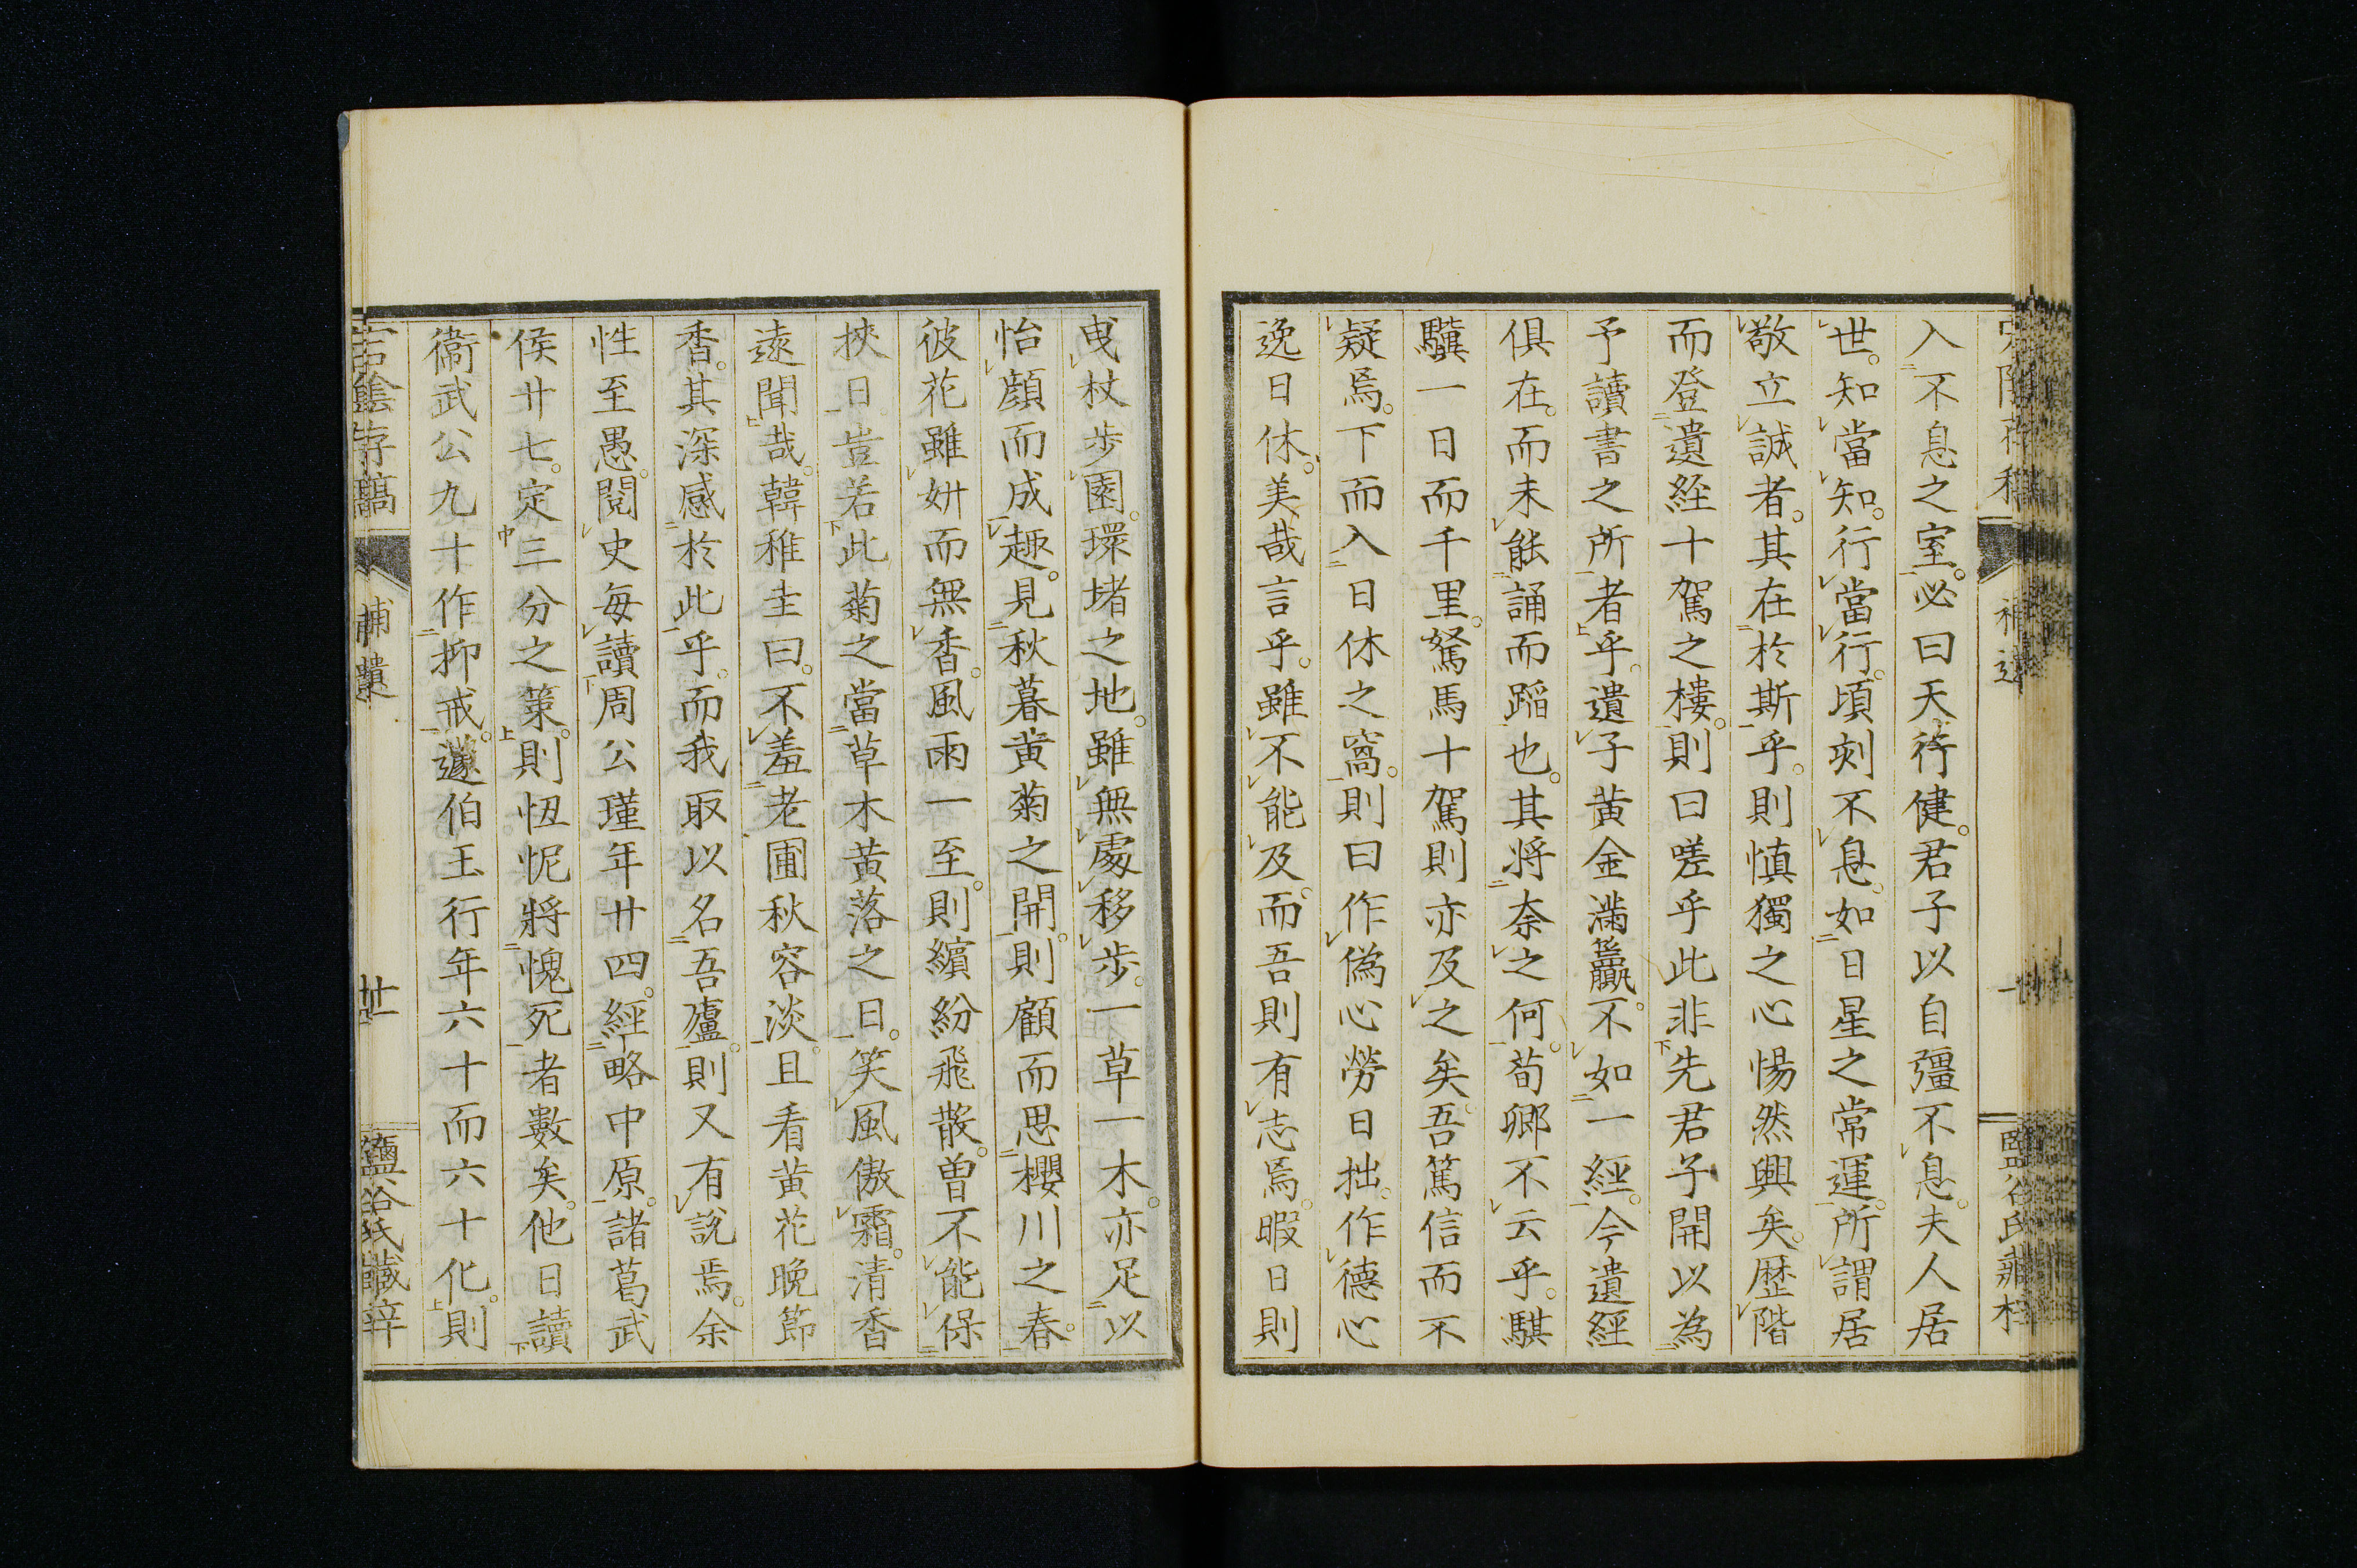 入不息之室必曰天行健君子以自彊不息夫人居
世知當知行當行頃刻不息如日星之常運所謂居
敬立誠者其在於斯乎則慎獨之心惕然興矣歷階
而登遺經十駕之樓則曰嗟乎此非先君子開以為
予讀書之所者乎遺子黃金滿籯不如一經今遺經
俱在而未能誦而蹈也其將奈之何荀卿不云乎騏
驥一日而千里駑馬十駕則亦及之矣吾篤信而不
疑焉下而入日休之窩則曰作偽心勞日拙作德心
逸日休美哉言乎雖不能及而吾則有志焉暇日則
曳杖步園環堵之地雖無處移步一草一木亦足以
怡顏而成趣見秋暮黃菊之開則顧而思櫻川之春
彼花雖妍而無香風雨一至則繽紛飛散曾不能保
挾日豈若此菊之當草木黃落之日笑風傲霜清香
遠聞哉韓稚圭曰不羞老圃秋容淡且看黃花晚節
香其深感於此乎而我取以名吾廬則又有說焉余
性至愚閱史每讀周公瑾年廿四經略中原諸葛武
侯廿七定三分之策則忸怩將愧死者數矣他日讀
衞武公九十作抑戒蘧伯玉行年六十而六十化則
宕陰存稿
補遺
廿
鹽谷氏藏梓